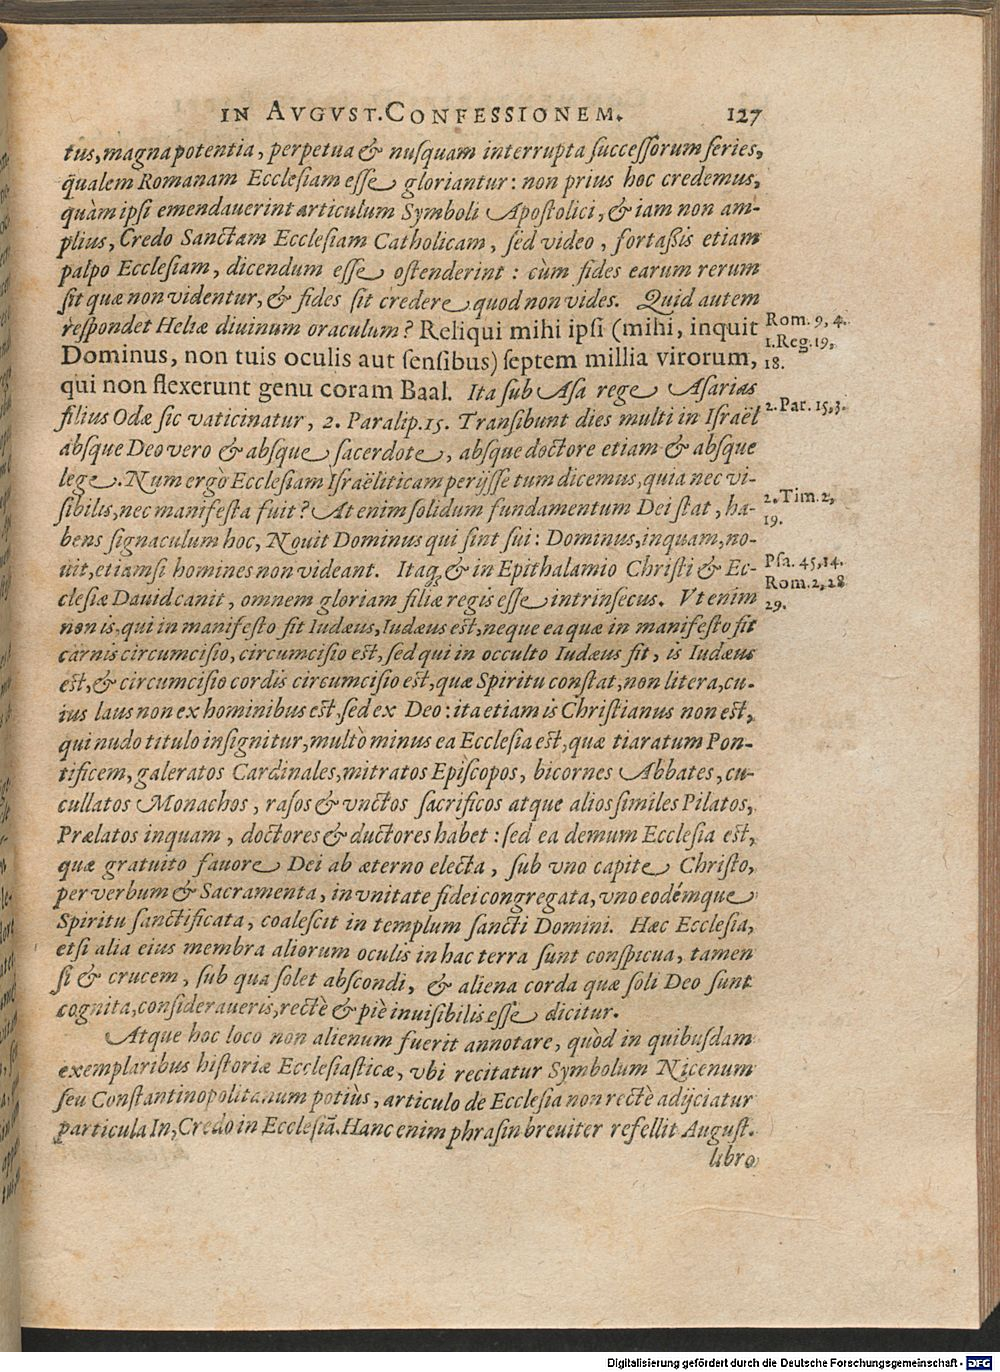 IN AVGVST. CONFESSIONEM. 127
tus, magna potentia, perpetua & nusquam interrupta successorum series,
qualem Romanam Ecclesiam esse gloriantur: non prius hoc credemus,
quàm ipsi emendauerint articulum Symboli Apostolici, & iam non am-
plius, Credo Sanctam Ecclesiam Catholicam, sed video, fortaßis etiam
palpo Ecclesiam, dicendum esse ostenderint: cùm fides earum rerum
sit quæ non videntur, & fides sit credere quod non vides. Quid autem
respondet Heliæ diuinum oraculum? Reliqui mihi ipsi (mihi, inquit
Rom. 9, 4.
Dominus, non tuis oculis aut sensibus) septem millia virorum,
1. Reg. 19,
18.
qui non flexerunt genu coram Baal. Ita sub Asa rege Asarias
filius Odæ sic vaticinatur, 2. Paralip. 15. Transibunt dies multi in Israël
2. Par. 15, 3.
absque Deo vero & absque sacerdote, absque doctore etiam & absque
lege. Num ergò Ecclesiam Israëliticam perijsse tum dicemus, quia nec vi-
sibilis, nec manifesta fuit? At enim solidum fundamentum Dei stat, ha-
2. Tim. 2,
19.
bens signaculum hoc, Nouit Dominus qui sint sui: Dominus, inquam, no-
uit, etiamsi homines non videant. Itaq; & in Epithalamio Christi & Ec-
Psa. 45, 14.
clesiæ Dauid canit, omnem gloriam filiæ regis esse intrinsecus. Vt enim
Rom. 2, 28
29.
non is, qui in manifesto fit Iudæus, Iudæus est, neque ea quæ in manifesto fit
carnis circumcisio, circumcisio est, sed qui in occulto Iudæus fit, is Iudæus
est, & circumcisio cordis circumcisio est, quæ Spiritu constat, non litera, cu-
ius laus non ex hominibus est, sed ex Deo: ita etiam is Christianus non est,
qui nudo titulo insignitur, multò minus ea Ecclesia est, quæ tiaratum Pon-
tificem, galeratos Cardinales, mitratos Episcopos, bicornes Abbates, cu-
cullatos Monachos, rasos & vnctos sacrificos atque alios similes Pilatos,
Prælatos inquam, doctores & ductores habet: sed ea demum Ecclesia est,
quæ gratuito fauore Dei ab æterno electa, sub vno capite Christo,
per verbum & Sacramenta, in vnitate fidei congregata, vno eodémque
Spiritu sanctificata, coalescit in templum sancti Domini. Hæc Ecclesia,
etsi alia eius membra aliorum oculis in hac terra sunt conspicua, tamen
si & crucem, sub qua solet abscondi, & aliena corda quæ soli Deo sunt
cognita, consideraueris, rectè & piè inuisibilis esse dicitur.
Atque hoc loco non alienum fuerit annotare, quòd in quibusdam
exemplaribus historiæ Ecclesiasticæ, vbi recitatur Symbolum Nicenum
seu Constantinopolitanum potiùs, articulo de Ecclesia non rectè adijciatur
particula In, Credo in Ecclesiã. Hanc enim phrasin breuiter refellit August.
libro
Digitalisierung gefördert durch die Deutsche Forschungsgemeinschaft - DFG